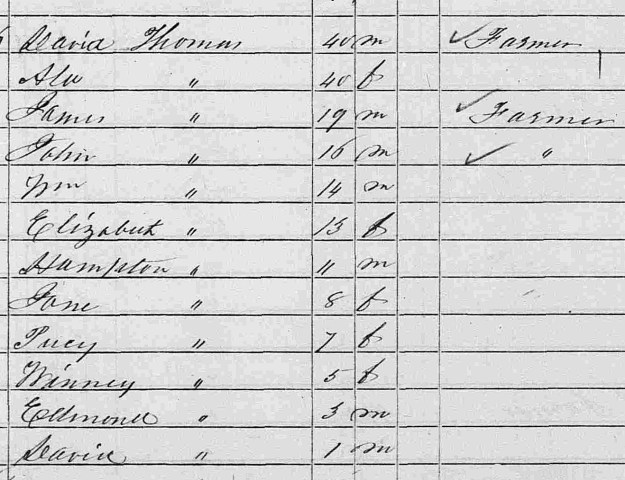 David Thomas 40 m ✓ Farmer
〃 40 f
James 〃 19 m ✓ Farmer
John 〃 16 m ✓ 〃
Wm 〃 14 m
Elizabeth 〃 13 f
Hampton 〃 11 m
Jane 〃 8 f
〃 7 f
Winney 〃 5 f
Edmond 〃 3 m
David 〃 1 m